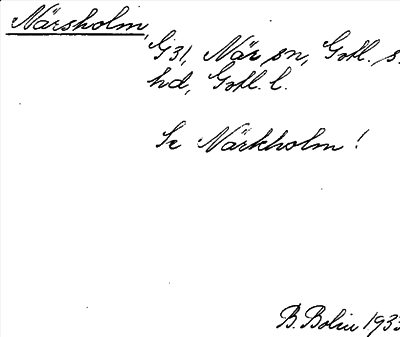 Närsholm,
G31, När sn, Gotl. s.
hd, Gotl. l.
Se Närkholm!
B. Bolin 1933